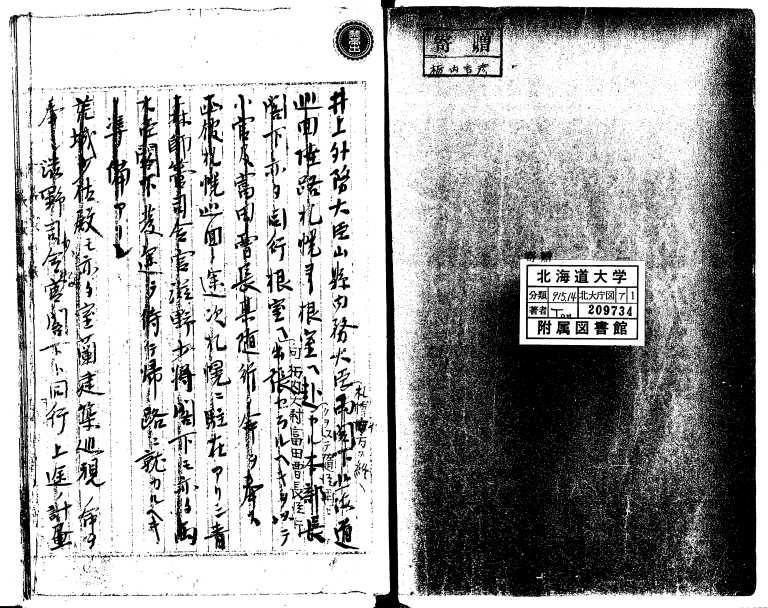 寄贈
栃内吉彦
寄贈
北海道大学
分類 915.14 北大庁図 ア 1
著者 Ton 209734
附属図書館
井上外務大臣山縣内務大臣両閣下北海道
巡回陸路札幌ヨリ根室ヘ赴カル本部長
閣下亦タ同行根室ヘ出張セラルヘキヲ以テ
小官及富田曹長其随行ノ命ヲ奉ス
函館札幌巡回ノ途次札幌ニ駐在アリシ青
森師営司令官滋野少将閣下モ亦タ両
大臣閣下発途ヲ待チ帰路ニ就カルヘキ
ノ準備アリ
荒城少佐殿モ亦タ室蘭建築巡視ノ命ヲ
奉シ滋野司令官閣下ト同行上途ノ計画